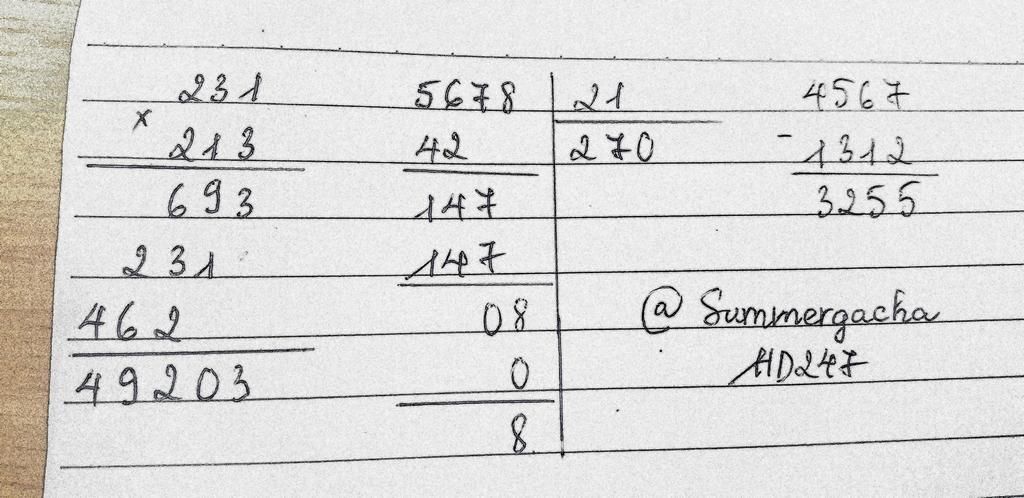 231
x
213
693
231
462
49203
5678 21
42 270
147
147
08
0
8
4567
-
1312
3255
@ Summergacha
HD247